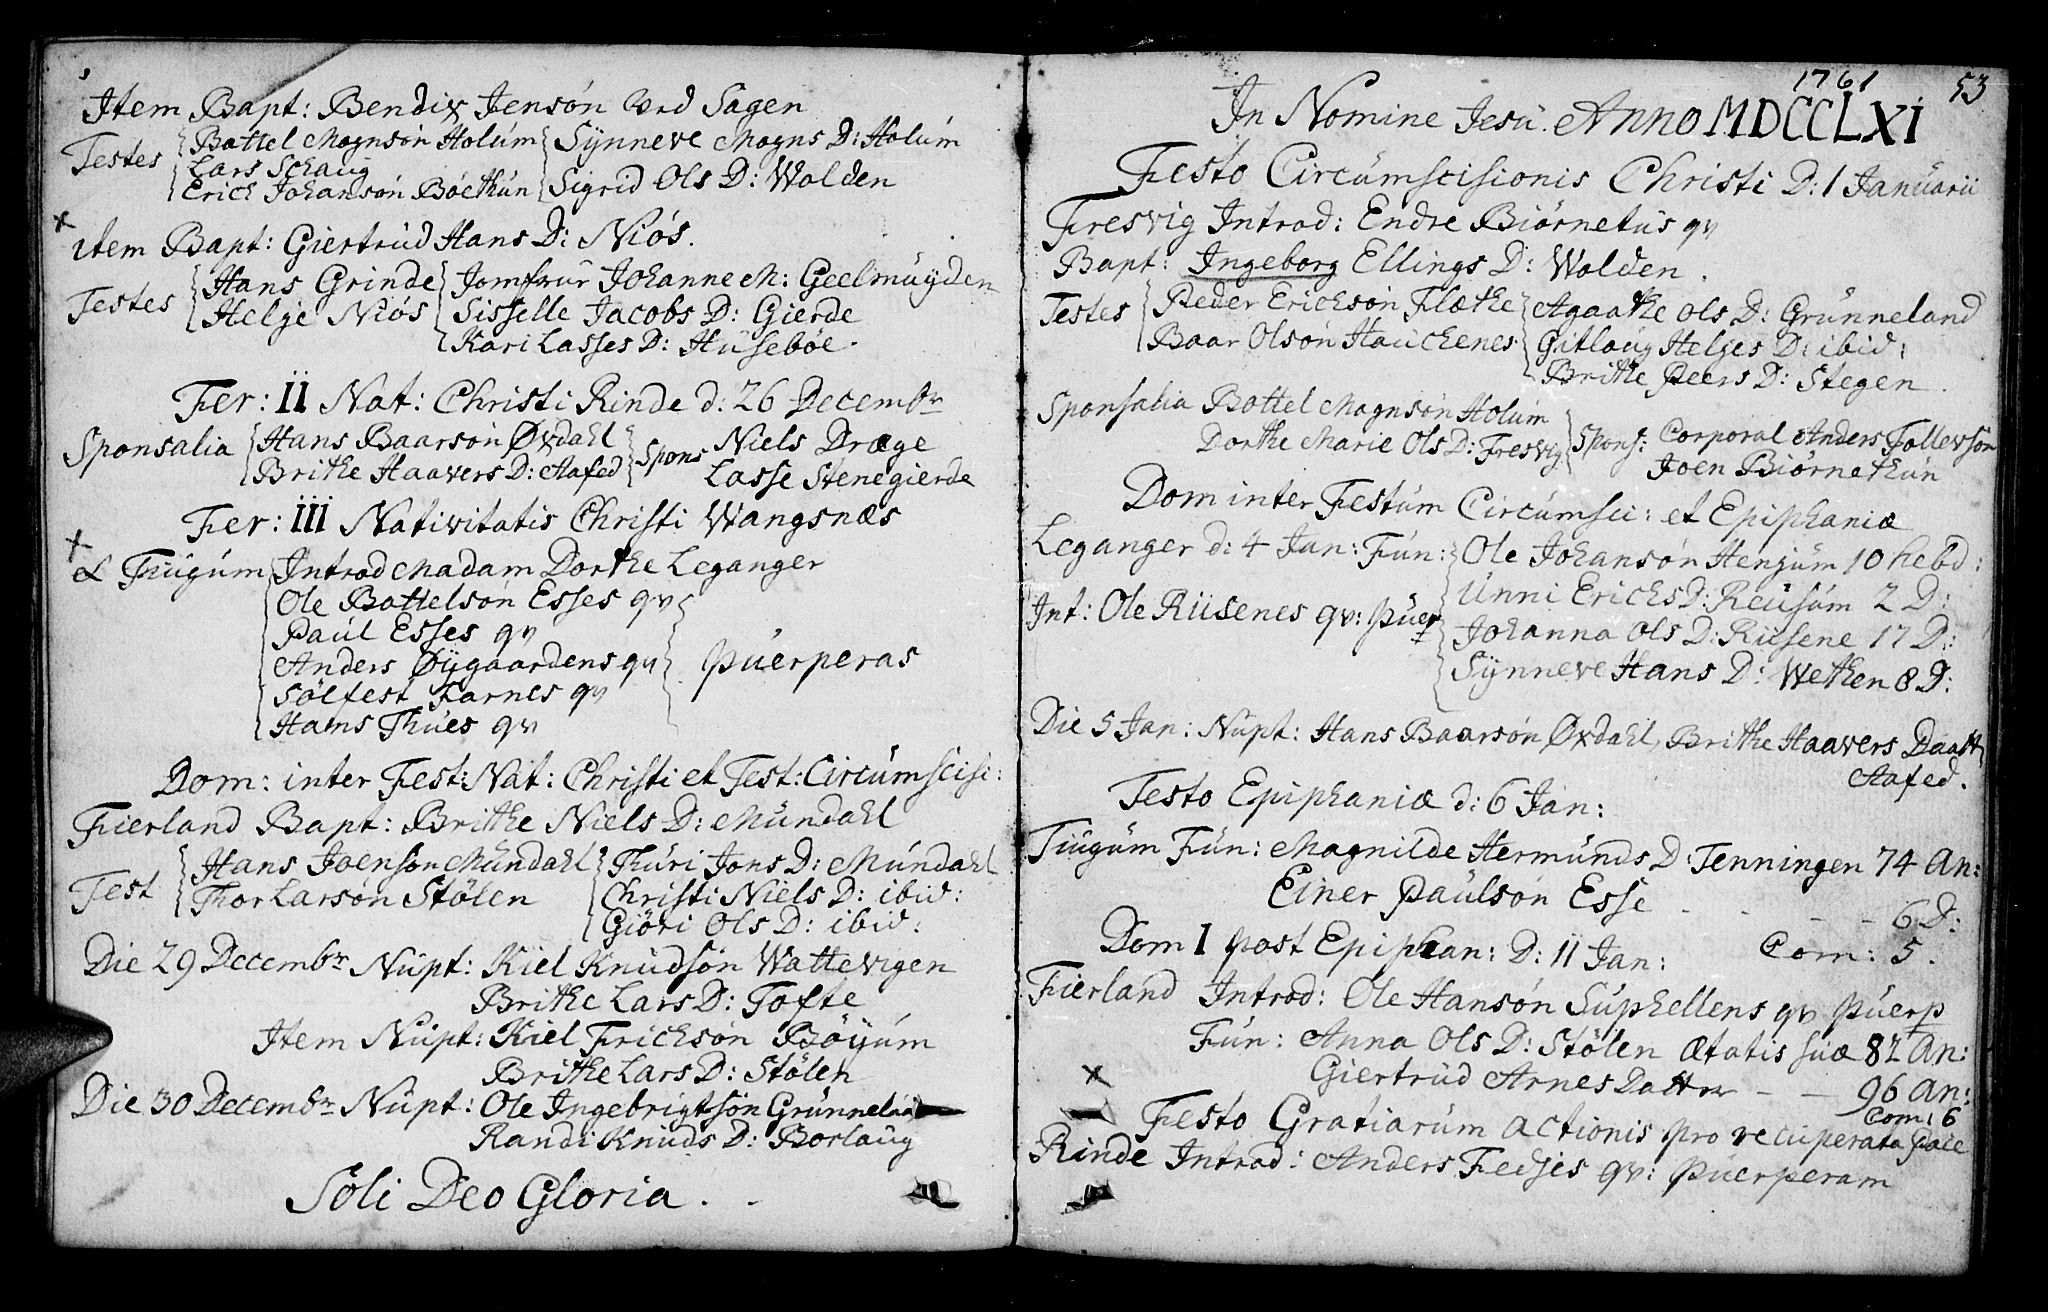 Item Bapt: Bendix Jensøn ved Sagen
Testes Bottel Mognsøn Holum Synneve Mogns D: Holum
Lars Schaug
Erich Johansøn Bøethun Sigrid Ols D: Wolden
x
item Bapt: Giertrud Hans D: Niøs.
Testes Hans Grinde Jomfrur Johanne M: Geelmuyden
Helje Niøs Sisselle Jacobs D: Gierde
Kari Lasses D: Husebøe.
Fer: II Nat: Christi Rinde d: 26 Decembr
Sponsalia Hans Baarsøn Øxdahl Spons Niels Dræge
Brithe Haavers D: Aafed Lasse Stenegierde
Fer: III Nativitatis Christi Wangsnæs
x
& Tiugum Introd Madam Dorthe Leganger
Ole Bottelsøn Esses qv
Paul Esses qv
Anders Øygaardens qv puerperas
Sølfest Farnes qv
Hans Thues qv
Dom: inter Fest: Nat: Christi et Fest: Circumscisi:
Fierland Bapt: Brithe Niels D: Mundahl
Test Hans Joensøn Mundahl Thuri Jons D: Mundahl
Thor Larsøn Stølen Christi Niels D: ibid:
Giøri Ols D: ibid:
Die 29 Decembr Nupt: Kiel Knudsøn Wattevigen
Brithe Lars D: Tofte
Item Nupt: Kiel Erichsøn Bøyum
Brithe Lars D: Stølen
Die 30 Decembr Nupt: Ole Ingebrigtsøn
Randi Knuds D: Borlaug
Soli Deo Gloria.
1761 53
In Nomine Jesu. Anno MDCCLXI
Festo Circumscisionis Christi D: 1 Januarii
Fresvig Introd: Endre Biørnetus qv
Bapt: Ingeborg Ellings D: Wolden.
Testes Peder Erichsøn Flæthe Agaathe Ols D: Grünneland
Baar Olsøn Hauchenes Gitlaug Heljes D: ibid:
Brithe Peers D: Stegen.
Sponsalia Bottel Mognsøn Holum Spons: Corporal Anders Tollevsøn
Dorthe Marie Ols D: Fresvig Joen Biørnethun
Dom inter Festum Circumsci: et Epiphaniæ
Leganger d: 4 Jan: Fun: Ole Johansøn Henjum 10 hebd:
Unni Erichs D: Reusum 2 D:
Int: Ole Riisenes qv: puer Johanna Ols D: Riisene 17 D:
Synneve Hans D: Wethen 8 D:
Die 5 Jan: Nupt: Hans Baarsøn Øxdahl, Brithe Haavers Daatt
Aafed.
Festo Epiphaniæ d: 6 Jan:
Tiugum Fun: Magnilde Hermunds D: Tenningen 74 An:
Einer Paulsøn Esse - - - - 6 D:
Dom I post Epiphan: D: 11 Jan: Com: 5.
Fierland Introd: Ole Hansøn Suphellens qv puerp
Fun: Anna Ols D: Stølen ætatis suæ 82 An:
x
Giertrud Arnes Datter - - 96 An:
Com: 6
Festo Gratiarum actionis pro recuperata pace
Rinde Introd: Anders Fedjes qv: puerperam